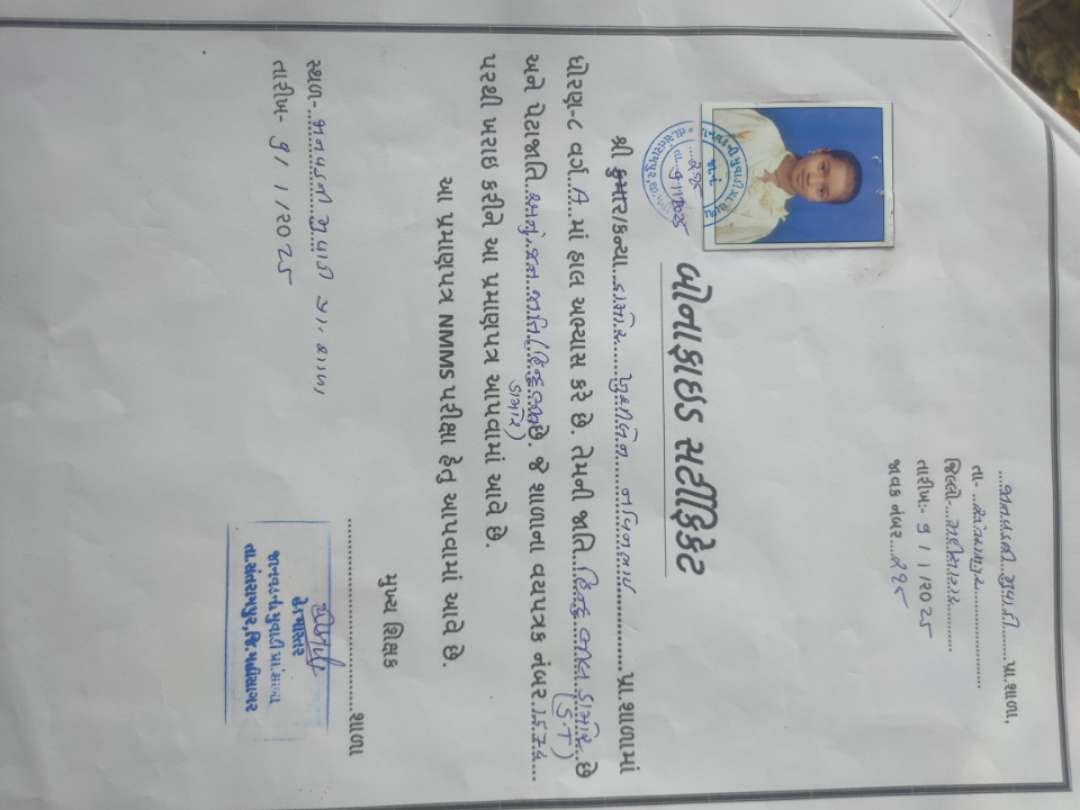 જાનવડની મુવાડી પ્રા.શાળા,
તા-...સંતરામપુર
જિલ્લો-...મહીસાગર
તારીખ:- ૧ / ૧ /૨૦૨૫
જાવક નંબર...૨૧૬૫
બોનાફાઇડ સર્ટીફિકેટ
શ્રી કુમાર/કન્યા...ડામોર... નવિનભાઇ......પ્રા.શાળામાં
ધોરણ-૮ વર્ગ...A...માં હાલ અભ્યાસ કરે છે. તેમની જાતિ...હિન્દુ...ડામોર...છે
(S.T)
અને પેટાજાતિ...અનુ.જન જાતિ/હિન્દુ...છે. જે શાળાના વયપત્રક નંબર...૧૬૩૬...
ડામોર)
પરથી ખરાઇ કરીને આ પ્રમાણપત્ર આપવામાં આવે છે.
આ પ્રમાણપત્ર NMMS પરીક્ષા હેતુ આપવામાં આવે છે.
સ્થળ-...જાનવડની મુવાડી પ્રા. શાળા
તારીખ- ૧ / ૧ /૨૦૨૫
મુખ્ય શિક્ષક
.....................શાળા
હેડમાસ્તર
જાનવડની મુવાડી પ્રા.શાળા
તા.સંતરામપુર, જિ.મહીસાગર